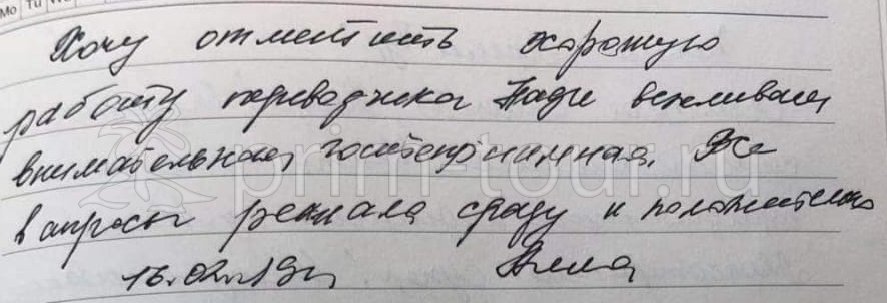 Mo Tu We
Хочу отметить хорошую
работу переводчика Нади вежливая
внимательная, гостеприимная. Все
вопросы решала сразу и положительно
16.02.19г. Алла
prim-tour.ru